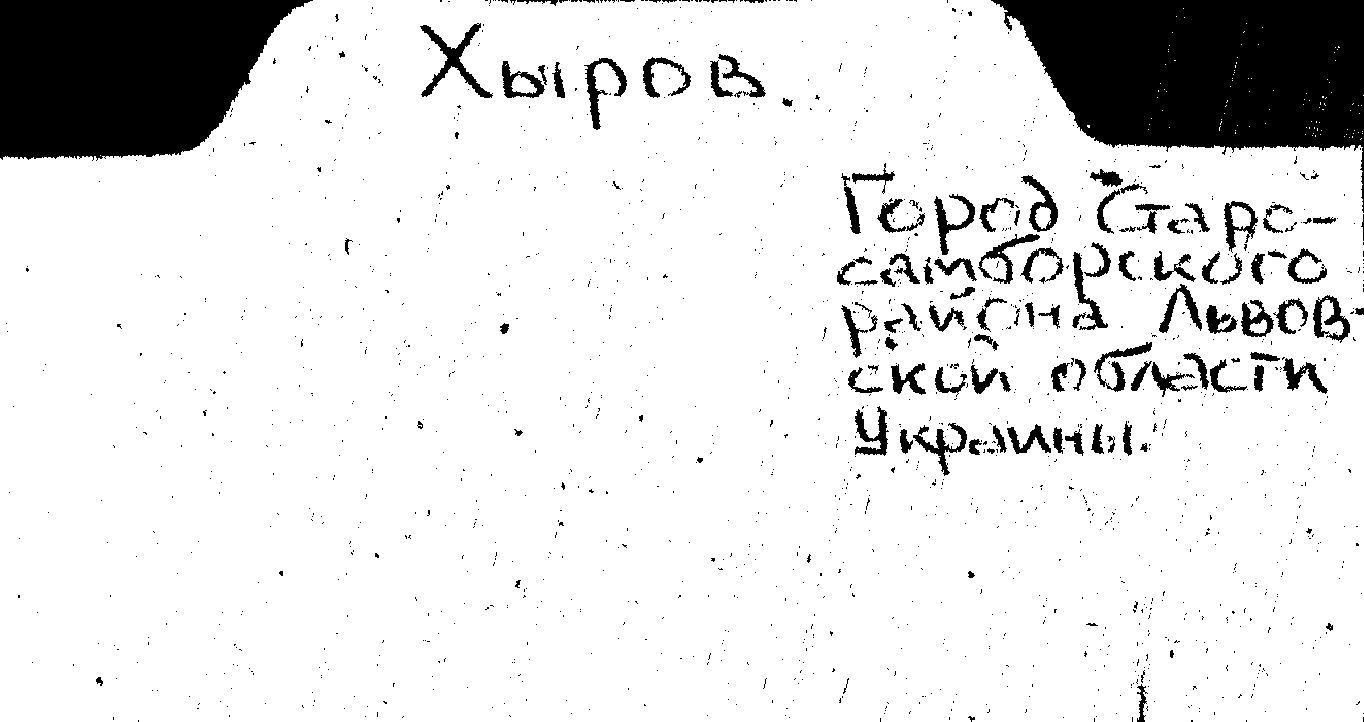 Хыров.
Город Старо-
самборского
района Львов-
ской области
Украины.